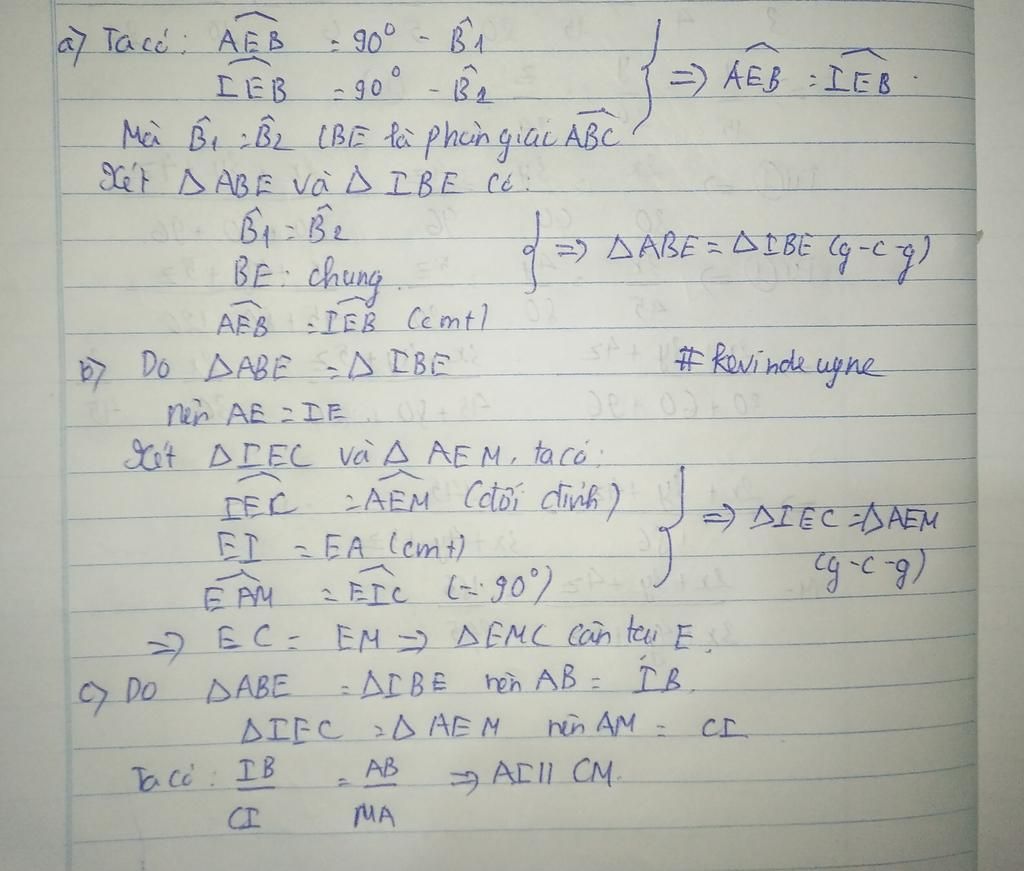 a) Ta có: AEB = 90° - B̂1
IEB = 90° - B̂2 } => AEB = IEB.
Mà B̂1 = B̂2 (BE là phân giác ABC
Xét Δ ABE và Δ IBE có:
B̂1 = B̂2
BE: chung. } => ΔABE = ΔIBE (g-c-g)
AEB = IEB (cmt)
b) Do ΔABE = Δ IBE #Kevindeuyne
nên AE = IE
Xét ΔIEC và Δ AEM, ta có:
IEC = AEM (đối đỉnh)
EI = EA (cmt) } => ΔIEC = ΔAEM
EAM = EIC (=90°) (g-c-g)
=> EC = EM => ΔEMC cân tại E.
c) Do ΔABE = ΔIBE nên AB = IB.
ΔIEC = Δ AEM nên AM = CI
Ta có: IB/CI = AB/MA => AI || CM.